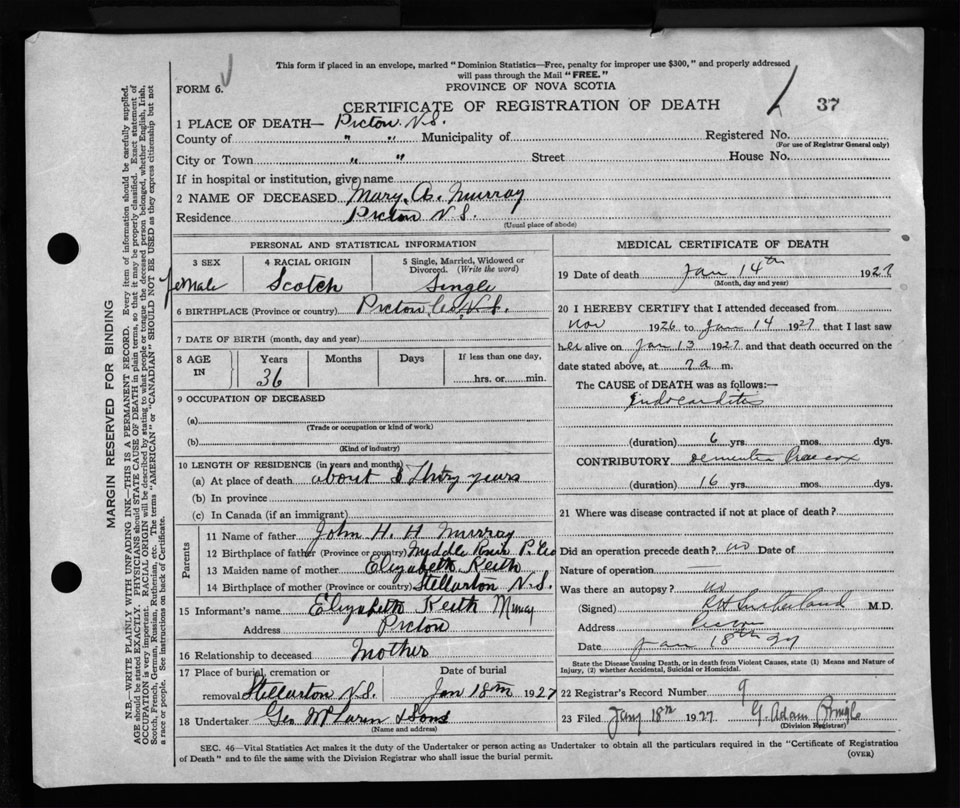 This form if placed in an envelope, marked "Dominion Statistics—Free, penalty for improper use $300," and properly addressed
will pass through the Mail "FREE."
FORM 6.
PROVINCE OF NOVA SCOTIA
CERTIFICATE OF REGISTRATION OF DEATH
37
1 PLACE OF DEATH— Picton N.S.
County of " " Municipality of Registered No.
(For use of Registrar General only)
City or Town " " Street House No.
If in hospital or institution, give name
2 NAME OF DECEASED Mary A. Murray
Residence Picton N.S.
(Usual place of abode)
PERSONAL AND STATISTICAL INFORMATION
3 SEX 4 RACIAL ORIGIN 5 Single, Married, Widowed or
Divorced. (Write the word)
female Scotch Single
6 BIRTHPLACE (Province or country) Picton Co. N.S.
7 DATE OF BIRTH (month, day and year)
8 AGE IN Years Months Days If less than one day,
36 hrs. or min.
9 OCCUPATION OF DECEASED
(a)
(Trade or occupation or kind of work)
(b)
(Kind of industry)
10 LENGTH OF RESIDENCE (in years and months)
(a) At place of death about Thirty years
(b) In province
(c) In Canada (if an immigrant)
Parents
11 Name of father John H. H Murray
12 Birthplace of father (Province or country) Middle River P. Co
13 Maiden name of mother Elizabeth Keith
14 Birthplace of mother (Province or country) Stellarton N.S.
15 Informant's name Elizabeth Keith Murray
Address Picton
16 Relationship to deceased Mother
17 Place of burial, cremation or Date of burial
removal Stellarton N.S. Jan 18th 1927
18 Undertaker Geo McLaren & Sons
(Name and address)
MEDICAL CERTIFICATE OF DEATH
19 Date of death Jan 14th 1927
(Month, day and year)
20 I HEREBY CERTIFY that I attended deceased from
Nov 1926 to Jan 14 1927 that I last saw
her alive on Jan 13 1927 and that death occurred on the
date stated above, at 7 a m.
The CAUSE of DEATH was as follows:—
Endocarditis
(duration) 6 yrs. mos. dys.
CONTRIBUTORY Dementia Praecox
(duration) 16 yrs. mos. dys.
21 Where was disease contracted if not at place of death?
Did an operation precede death? no Date of
Nature of operation —
Was there an autopsy? no
(Signed) Sutherland M.D.
Address Picton
Date Jan 18th 27
State the Disease causing Death, or in death from Violent Causes, state (1) Means and Nature of
Injury, (2) whether Accidental, Suicidal or Homicidal.
22 Registrar's Record Number 9
23 Filed Jany 18th 1927 G. Adam Pringle
(Division Registrar)
SEC. 46—Vital Statistics Act makes it the duty of the Undertaker or person acting as Undertaker to obtain all the particulars required in the "Certificate of Registration
of Death" and to file the same with the Division Registrar who shall issue the burial permit.
(OVER)
MARGIN RESERVED FOR BINDING
N.B.—WRITE PLAINLY WITH UNFADING INK—THIS IS A PERMANENT RECORD. Every item of information should be carefully supplied.
AGE should be stated EXACTLY. PHYSICIANS should STATE CAUSE OF DEATH in plain terms, so that it may be properly classified. Exact statement of
OCCUPATION is very important. RACIAL ORIGIN will be described by stating to what people or tongue the deceased person belonged, whether English, Irish,
Scotch, French, German, Russian, Ruthenian, etc. The terms "AMERICAN" or "CANADIAN" SHOULD NOT BE USED as they express citizenship but not
a race or people. See instructions on back of Certificate.